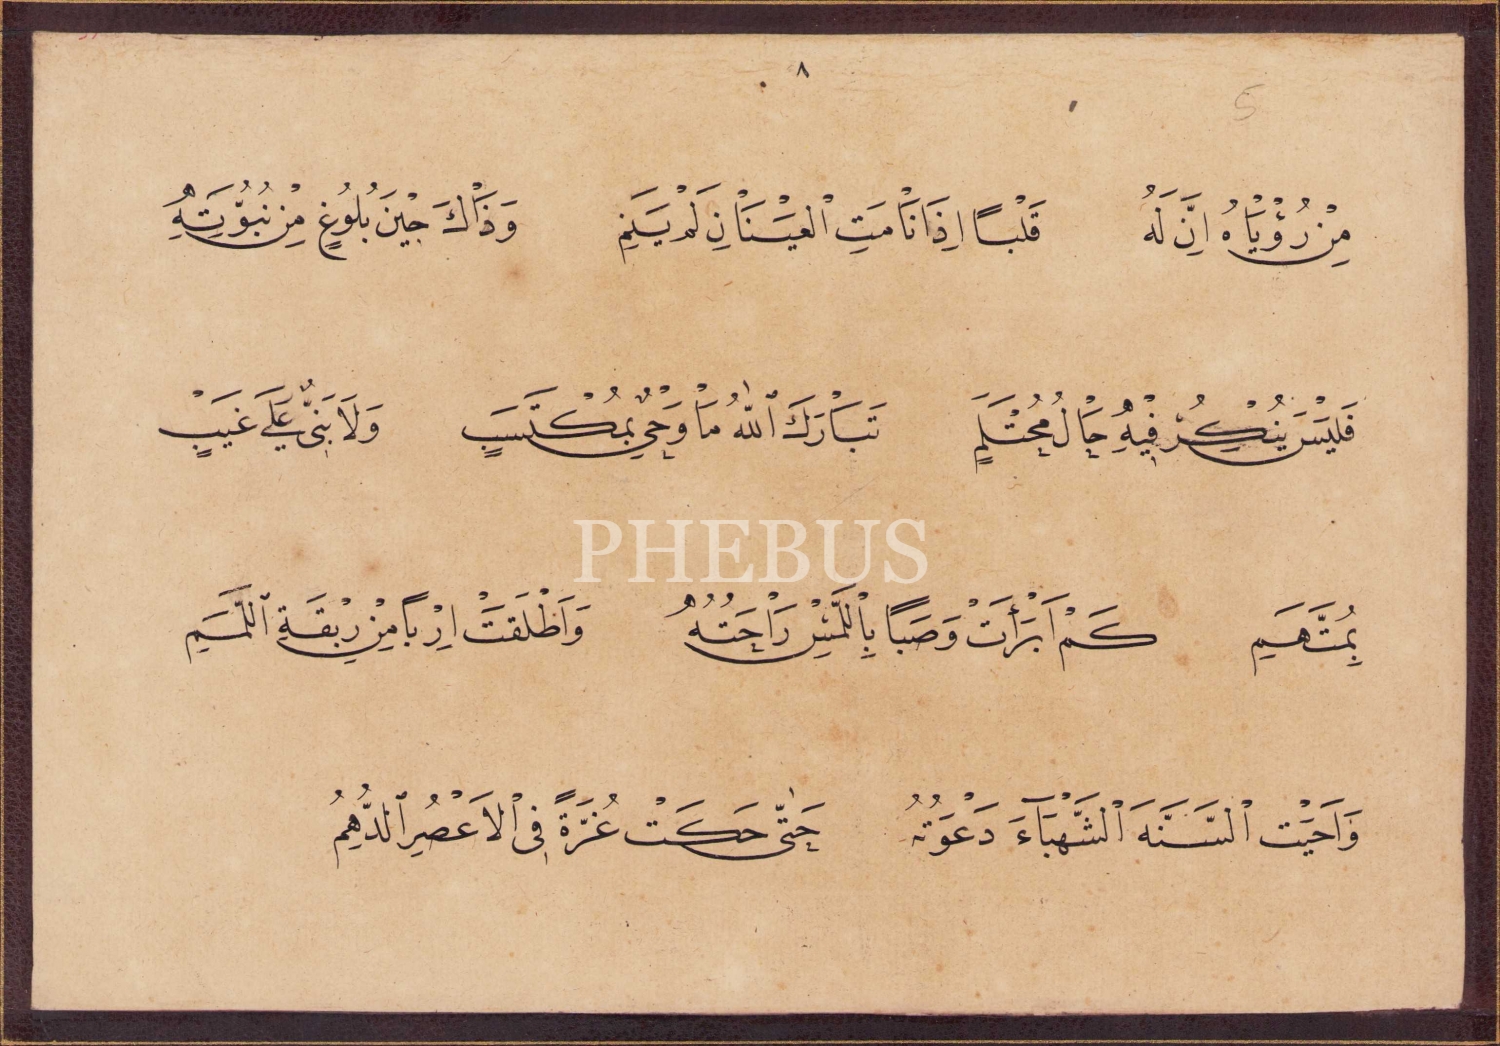 ٨
5
مِنْ رُؤْيَاهُ اِنَّ لَهُ قَلْبًا اِذَا نَامَتِ الْعَيْنَانِ لَمْ يَنَمِ وَذَاكَ حِيْنَ بُلُوغٍ مِنْ نُبُوَّتِهِ
فَلَيْسَ يُنْكِرُ فِيْهِ حَالُ مُحْتَلِمٍ تَبَارَكَ اللّٰهُ مَا وَحْيٌ بِمُكْتَسَبٍ وَلَا نَبِيٌّ عَلَى غَيْبٍ
بِمُتَّهَمِ كَمْ اَبْرَأَتْ وَصِبًا بِالْلَّمْسِ رَاحَتُهُ وَاَطْلَقَتْ اَرِبًا مِنْ رِبْقَةِ اللَّمَمِ
وَاَحْيَتِ السَّنَةَ الشَّهْبَآءَ دَعْوَتُهُ حَتّٰى حَكَتْ غُرَّةً فِى الْاَعْصُرِ الدُّهُمِ
PHEBUS